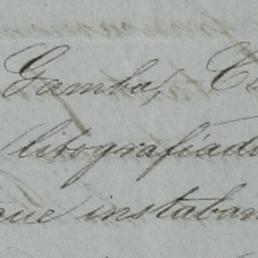 Gamba,
litografiad
que instaban